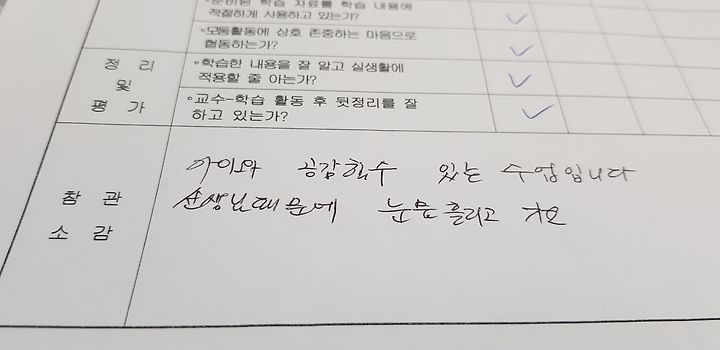 ◦준비된 학습 자료를 학습 내용에
적절하게 사용하고 있는가?
◦모둠활동에 상호 존중하는 마음으로
협동하는가?
정 리
및
평 가
◦학습한 내용을 잘 알고 실생활에
적용할 줄 아는가?
◦교수-학습 활동 후 뒷정리를 잘
하고 있는가?
참 관
소 감
아이와 공감할수 있는 수업입니다
선생님때문에 눈물 흘리고